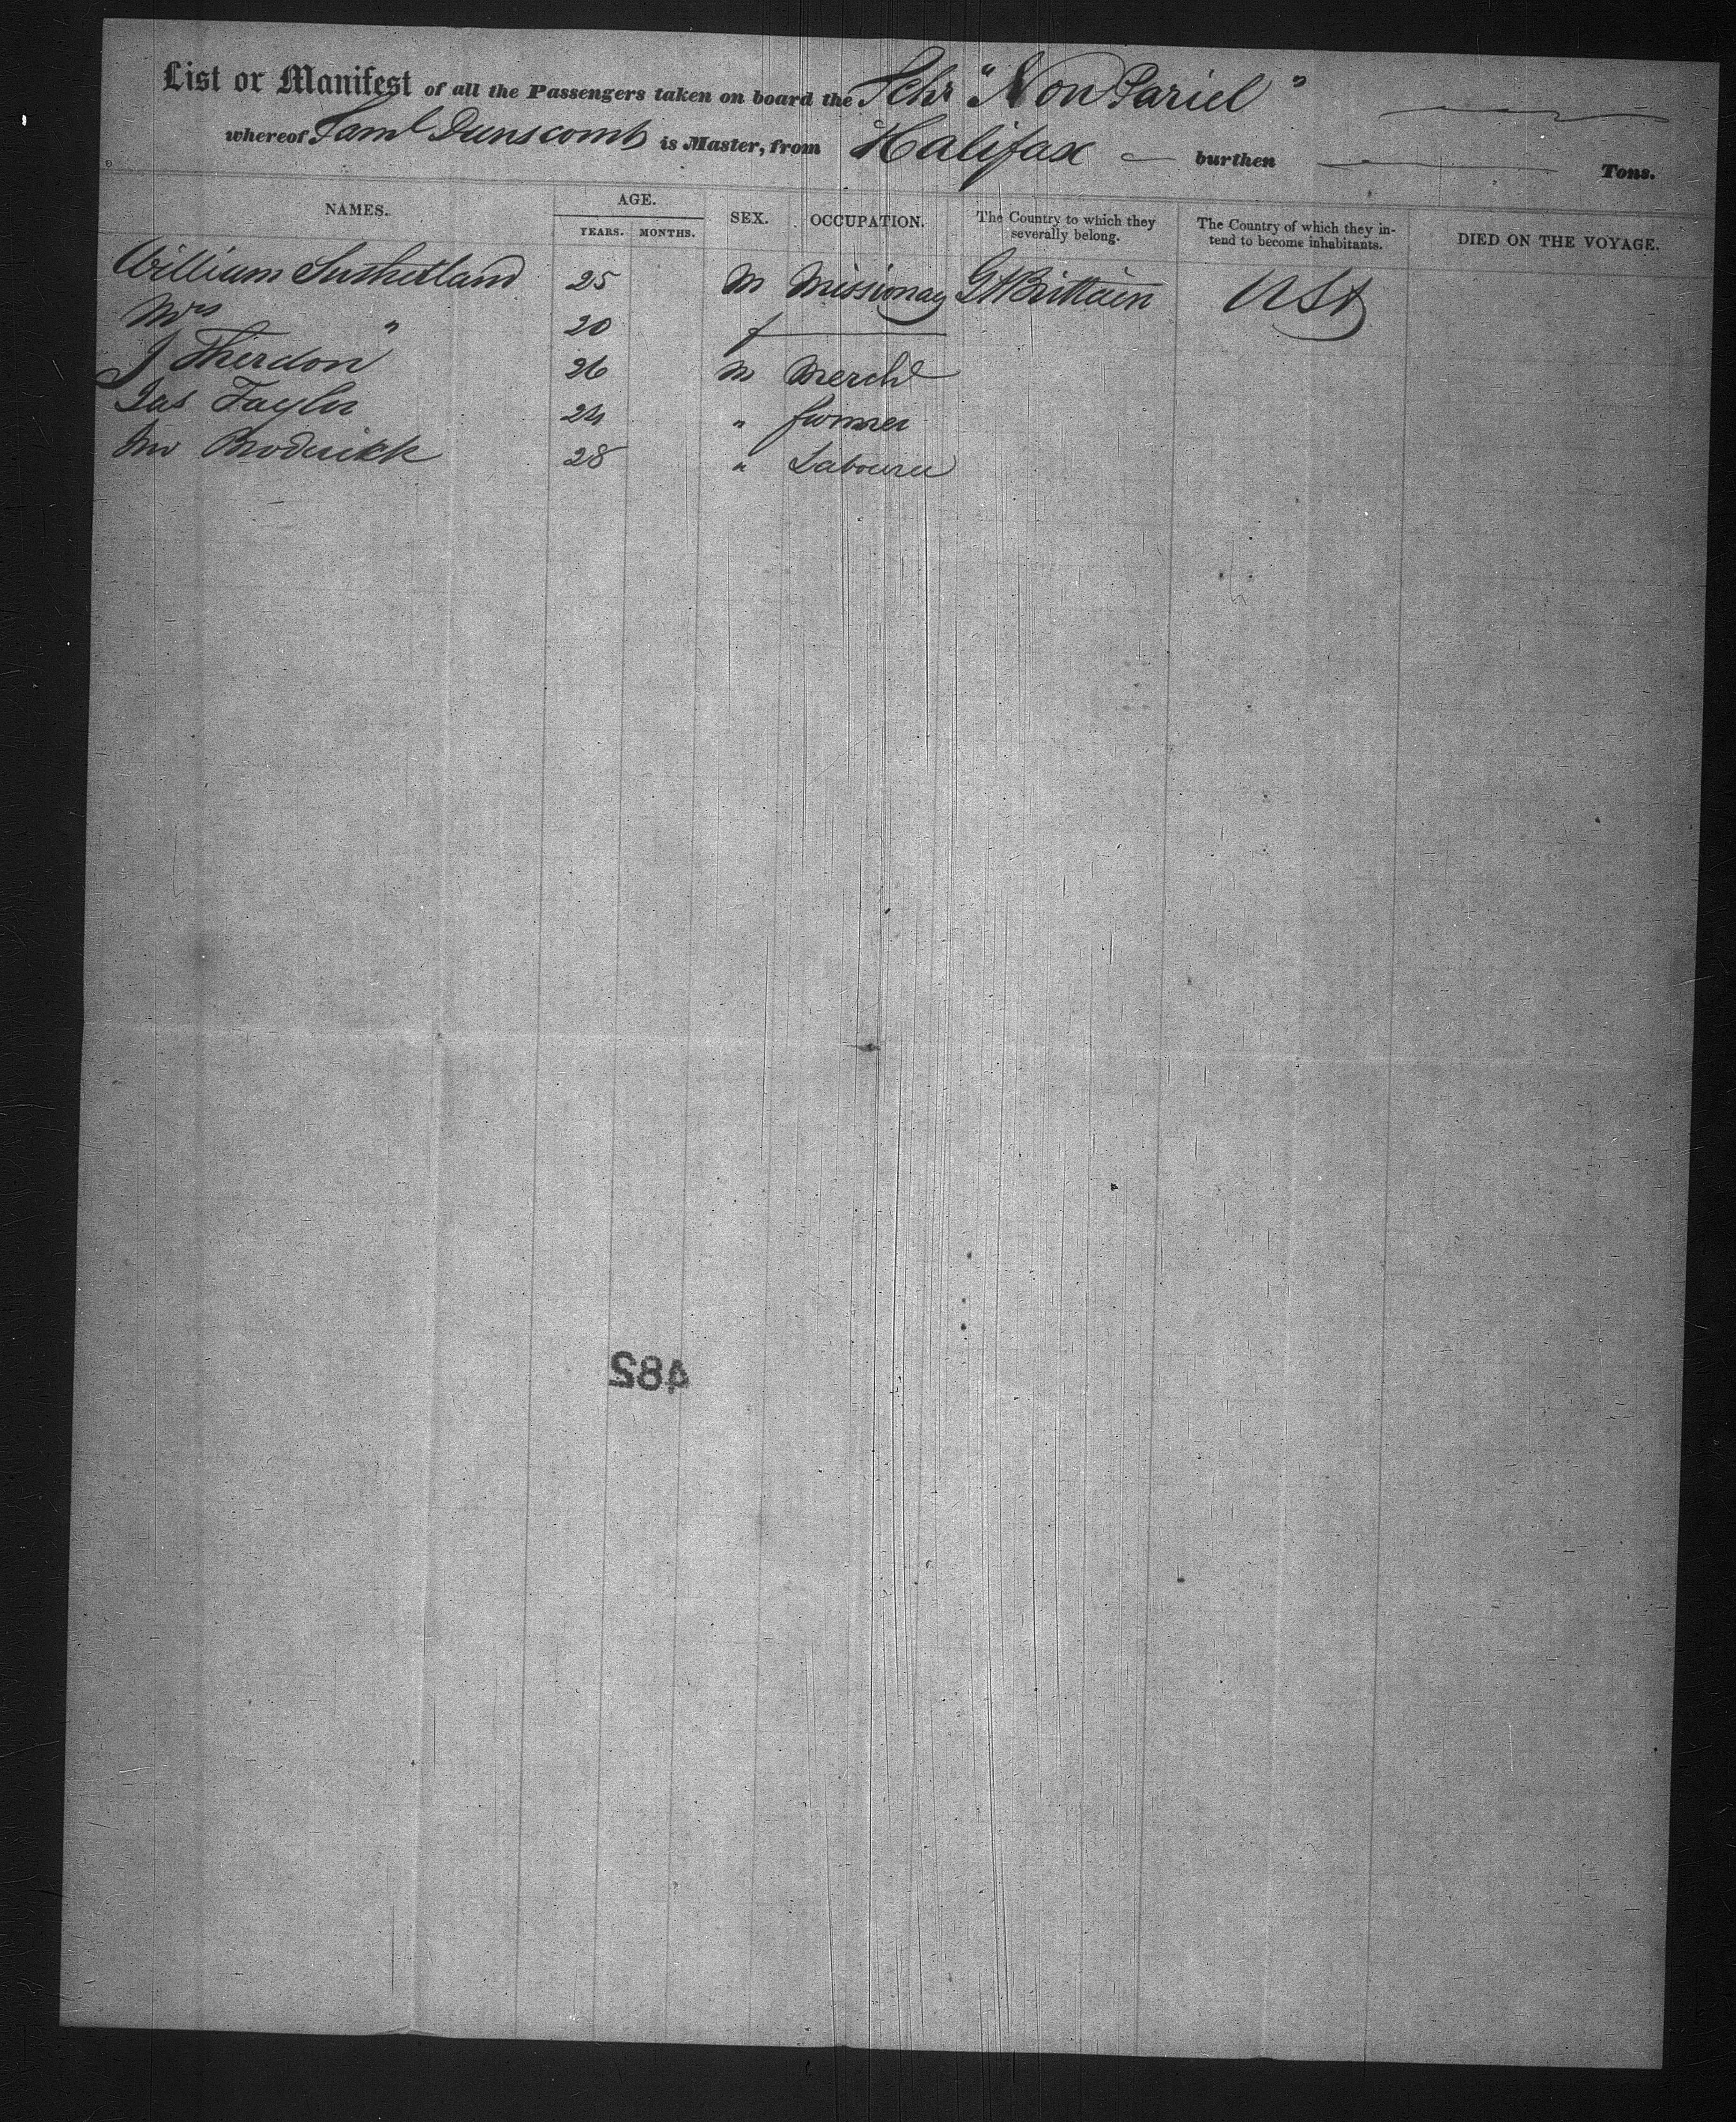 List or Manifest of all the Passengers taken on board the Schr "Non Pariel"
whereof Saml Dunscomb is Master, from Halifax — burthen — Tons.
NAMES. AGE. YEARS. MONTHS. SEX. OCCUPATION. The Country to which they severally belong. The Country of which they intend to become inhabitants. DIED ON THE VOYAGE.
William Sutherland 25 M Missionary Gt Brittain U St
Mrs " 20 f
J 26 M Mercht
Jas Taylor 24 " farmer
Jno Broderick 28 " Labourer
482